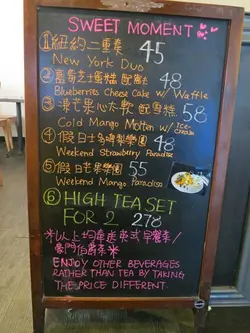 SWEET MOMENT
① 紐約二重奏 45
New York Duo
② 藍莓芝士蛋糕 配窩夫 48
Blueberries Cheese Cake w/ Waffle
③ 凍芒果心太軟 配雪糕 58
Cold Mango Molten w/ Ice-cream
④ 假日士多啤梨樂園 48
Weekend Strawberry Paradise
⑤ 假日芒果樂園 55
Weekend Mango Paradise
⑥ HIGH TEA SET
FOR 2 278
以上均奉送英式早餐茶/
豪門伯爵茶
ENJOY OTHER BEVERAGES
RATHER THAN TEA BY TAKING
THE PRICE DIFFERENT.